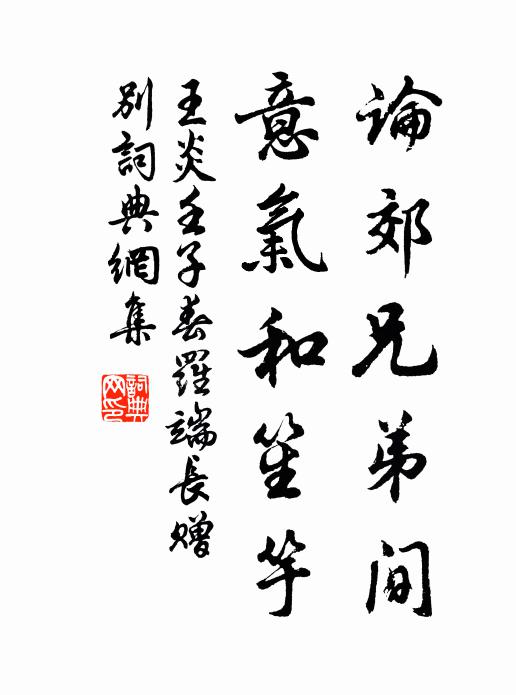 論郊兄弟間
意氣和笙竽
王炎壬子春羅端長贈
別詞典網集
詞典網印